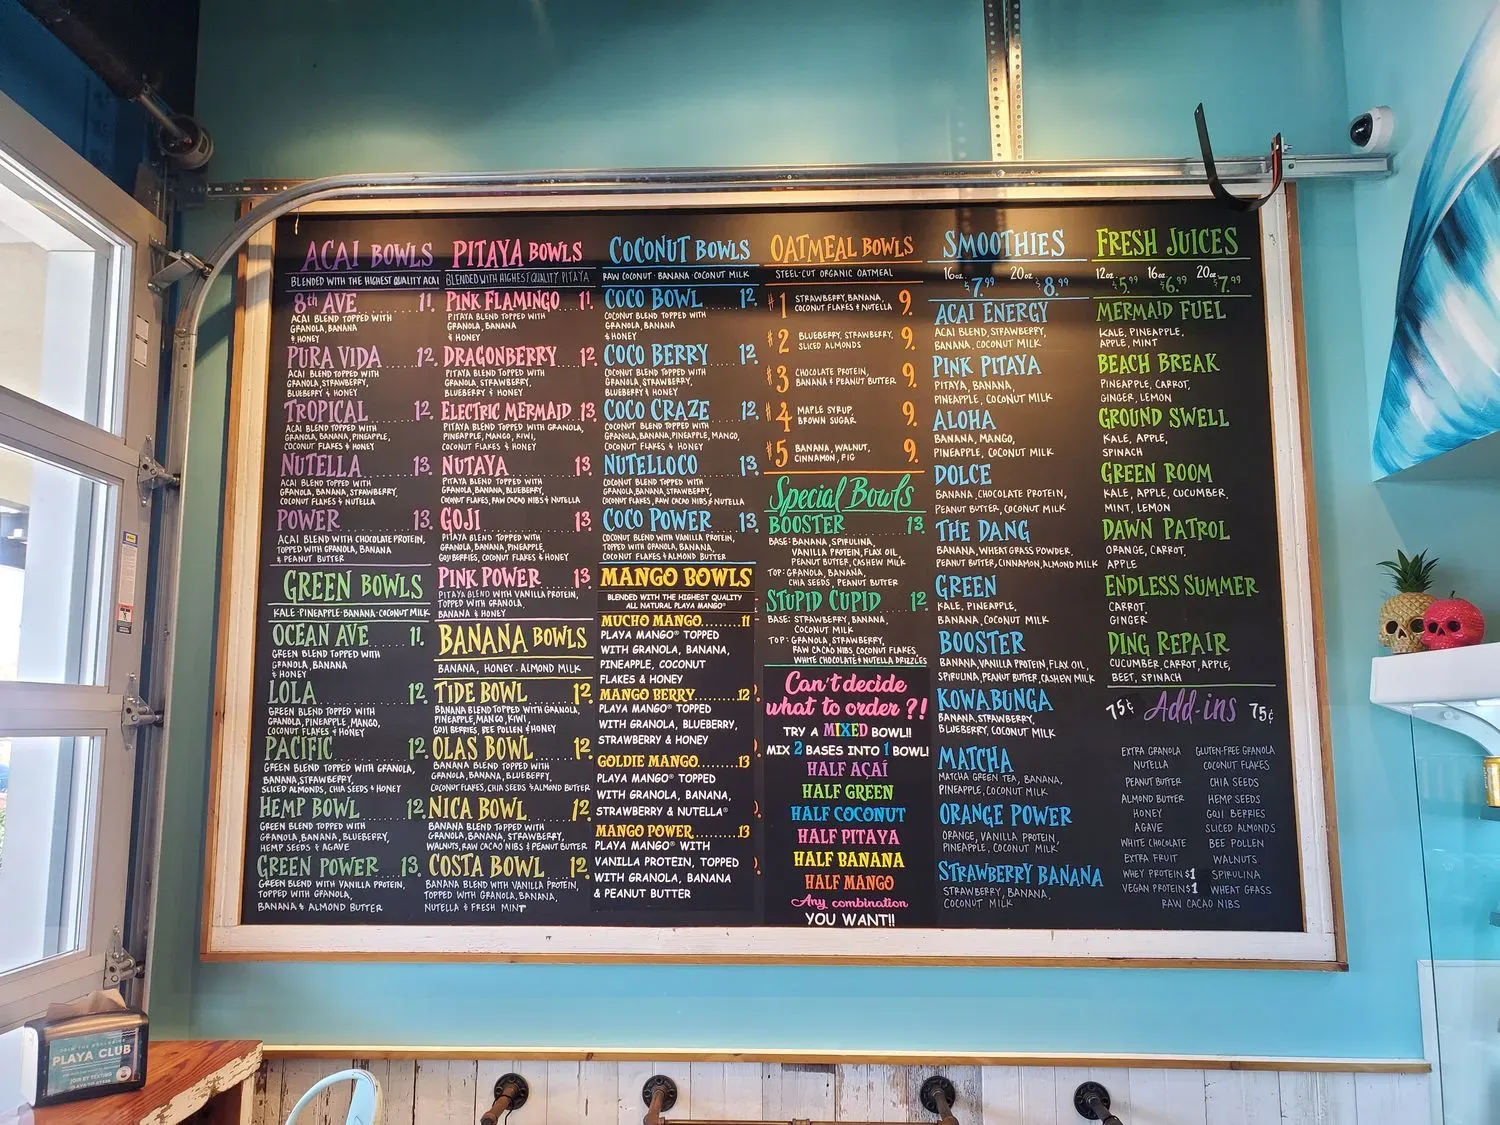 ACAI BOWLS
BLENDED WITH THE HIGHEST QUALITY ACAI
8th AVE 11.
ACAI BLEND TOPPED WITH
GRANOLA, BANANA
& HONEY
PURA VIDA 12.
ACAI BLEND TOPPED WITH
GRANOLA, STRAWBERRY,
BLUEBERRY & HONEY
TROPICAL 12.
ACAI BLEND TOPPED WITH
GRANOLA, BANANA, PINEAPPLE,
COCONUT FLAKES & HONEY
NUTELLA 13.
ACAI BLEND TOPPED WITH
GRANOLA, BANANA, STRAWBERRY,
COCONUT FLAKES & NUTELLA
POWER 13.
ACAI BLEND WITH CHOCOLATE PROTEIN,
TOPPED WITH GRANOLA, BANANA
& PEANUT BUTTER
GREEN BOWLS
KALE · PINEAPPLE · BANANA · COCONUT MILK
OCEAN AVE 11.
GREEN BLEND TOPPED WITH
GRANOLA, BANANA
& HONEY
LOLA 12.
GREEN BLEND TOPPED WITH
GRANOLA, PINEAPPLE, MANGO,
COCONUT FLAKES & HONEY
PACIFIC 12.
GREEN BLEND TOPPED WITH GRANOLA,
BANANA, STRAWBERRY,
SLICED ALMONDS, CHIA SEEDS & HONEY
HEMP BOWL 12.
GREEN BLEND TOPPED WITH
GRANOLA, BANANA, BLUEBERRY,
HEMP SEEDS & AGAVE
GREEN POWER 13.
GREEN BLEND WITH VANILLA PROTEIN,
TOPPED WITH GRANOLA,
BANANA & ALMOND BUTTER
PITAYA BOWLS
BLENDED WITH HIGHEST QUALITY PITAYA
PINK FLAMINGO 11.
PITAYA BLEND TOPPED WITH
GRANOLA, BANANA
& HONEY
DRAGONBERRY 12.
PITAYA BLEND TOPPED WITH
GRANOLA, STRAWBERRY,
BLUEBERRY & HONEY
ELECTRIC MERMAID 13.
PITAYA BLEND TOPPED WITH GRANOLA,
PINEAPPLE, MANGO, KIWI,
COCONUT FLAKES & HONEY
NUTAYA 13.
PITAYA BLEND TOPPED WITH
GRANOLA, BANANA, BLUEBERRY,
COCONUT FLAKES, RAW CACAO NIBS & NUTELLA
GOJI 13.
PITAYA BLEND TOPPED WITH
GRANOLA, BANANA, PINEAPPLE,
GOJI BERRIES, COCONUT FLAKES & HONEY
PINK POWER 13.
PITAYA BLEND WITH VANILLA PROTEIN,
TOPPED WITH GRANOLA,
BANANA & HONEY
BANANA BOWLS
BANANA, HONEY · ALMOND MILK
TIDE BOWL 12.
BANANA BLEND TOPPED WITH GRANOLA,
PINEAPPLE, MANGO, KIWI,
GOJI BERRIES, BEE POLLEN & HONEY
OLAS BOWL 12.
BANANA BLEND TOPPED WITH
GRANOLA, BANANA, BLUEBERRY,
COCONUT FLAKES, CHIA SEEDS & ALMOND BUTTER
NICA BOWL 12.
BANANA BLEND TOPPED WITH
GRANOLA, BANANA, STRAWBERRY,
WALNUTS, RAW CACAO NIBS & PEANUT BUTTER
COSTA BOWL 12.
BANANA BLEND WITH VANILLA PROTEIN,
TOPPED WITH GRANOLA, BANANA,
NUTELLA & FRESH MINT
COCONUT BOWLS
RAW COCONUT · BANANA · COCONUT MILK
COCO BOWL 12.
COCONUT BLEND TOPPED WITH
GRANOLA, BANANA
& HONEY
COCO BERRY 12.
COCONUT BLEND TOPPED WITH
GRANOLA, STRAWBERRY,
BLUEBERRY & HONEY
COCO CRAZE 12.
COCONUT BLEND TOPPED WITH
GRANOLA, BANANA, PINEAPPLE, MANGO,
COCONUT FLAKES & HONEY
NUTELLOCO 13.
COCONUT BLEND TOPPED WITH
GRANOLA, BANANA, STRAWBERRY,
COCONUT FLAKES, RAW CACAO NIBS & NUTELLA
COCO POWER 13.
COCONUT BLEND WITH VANILLA PROTEIN,
TOPPED WITH GRANOLA, BANANA,
COCONUT FLAKES & ALMOND BUTTER
MANGO BOWLS
BLENDED WITH THE HIGHEST QUALITY
ALL NATURAL PLAYA MANGO®
MUCHO MANGO 11
PLAYA MANGO® TOPPED
WITH GRANOLA, BANANA,
PINEAPPLE, COCONUT
FLAKES & HONEY
MANGO BERRY 12
PLAYA MANGO® TOPPED
WITH GRANOLA, BLUEBERRY,
STRAWBERRY & HONEY
GOLDIE MANGO 13
PLAYA MANGO® TOPPED
WITH GRANOLA, BANANA,
STRAWBERRY & NUTELLA®
MANGO POWER 13
PLAYA MANGO® WITH
VANILLA PROTEIN, TOPPED
WITH GRANOLA, BANANA
& PEANUT BUTTER
OATMEAL BOWLS
STEEL-CUT ORGANIC OATMEAL
#1 STRAWBERRY, BANANA, 9.
COCONUT FLAKES & NUTELLA
#2 BLUEBERRY, STRAWBERRY, 9.
SLICED ALMONDS
#3 CHOCOLATE PROTEIN, 9.
BANANA & PEANUT BUTTER
#4 MAPLE SYRUP, 9.
BROWN SUGAR
#5 BANANA, WALNUT, 9.
CINNAMON, FIG
Special Bowls
BOOSTER 13.
BASE: BANANA, SPIRULINA,
VANILLA PROTEIN, FLAX OIL,
PEANUT BUTTER, CASHEW MILK
TOP: GRANOLA, BANANA,
CHIA SEEDS, PEANUT BUTTER
STUPID CUPID 12.
BASE: STRAWBERRY, BANANA,
COCONUT MILK
TOP: GRANOLA, STRAWBERRY,
RAW CACAO NIBS, COCONUT FLAKES,
WHITE CHOCOLATE & NUTELLA DRIZZLES
Can't decide
what to order?!
TRY A MIXED BOWL!!
MIX 2 BASES INTO 1 BOWL!
HALF AÇAÍ
HALF GREEN
HALF COCONUT
HALF PITAYA
HALF BANANA
HALF MANGO
Any combination
YOU WANT!!
SMOOTHIES
16oz. $7.99 20oz. $8.99
ACAI ENERGY
ACAI BLEND, STRAWBERRY,
BANANA, COCONUT MILK
PINK PITAYA
PITAYA, BANANA,
PINEAPPLE, COCONUT MILK
ALOHA
BANANA, MANGO,
PINEAPPLE, COCONUT MILK
DOLCE
BANANA, CHOCOLATE PROTEIN,
PEANUT BUTTER, COCONUT MILK
THE DANG
BANANA, WHEAT GRASS POWDER,
PEANUT BUTTER, CINNAMON, ALMOND MILK
GREEN
KALE, PINEAPPLE,
BANANA, COCONUT MILK
BOOSTER
BANANA, VANILLA PROTEIN, FLAX OIL,
SPIRULINA, PEANUT BUTTER, CASHEW MILK
KOWABUNGA
BANANA, STRAWBERRY,
BLUEBERRY, COCONUT MILK
MATCHA
MATCHA GREEN TEA, BANANA,
PINEAPPLE, COCONUT MILK
ORANGE POWER
ORANGE, VANILLA PROTEIN,
PINEAPPLE, COCONUT MILK
STRAWBERRY BANANA
STRAWBERRY, BANANA,
COCONUT MILK
FRESH JUICES
12oz. $5.99 16oz. $6.99 20oz. $7.99
MERMAID FUEL
KALE, PINEAPPLE,
APPLE, MINT
BEACH BREAK
PINEAPPLE, CARROT,
GINGER, LEMON
GROUND SWELL
KALE, APPLE,
SPINACH
GREEN ROOM
KALE, APPLE, CUCUMBER,
MINT, LEMON
DAWN PATROL
ORANGE, CARROT,
APPLE
ENDLESS SUMMER
CARROT,
GINGER
DING REPAIR
CUCUMBER, CARROT, APPLE,
BEET, SPINACH
75¢ Add-ins 75¢
EXTRA GRANOLA
NUTELLA
PEANUT BUTTER
ALMOND BUTTER
HONEY
AGAVE
WHITE CHOCOLATE
EXTRA FRUIT
WHEY PROTEIN $1
VEGAN PROTEIN $1
GLUTEN-FREE GRANOLA
COCONUT FLAKES
CHIA SEEDS
HEMP SEEDS
GOJI BERRIES
SLICED ALMONDS
BEE POLLEN
WALNUTS
SPIRULINA
WHEAT GRASS
RAW CACAO NIBS
PLAYA CLUB
JOIN BY TEXTING